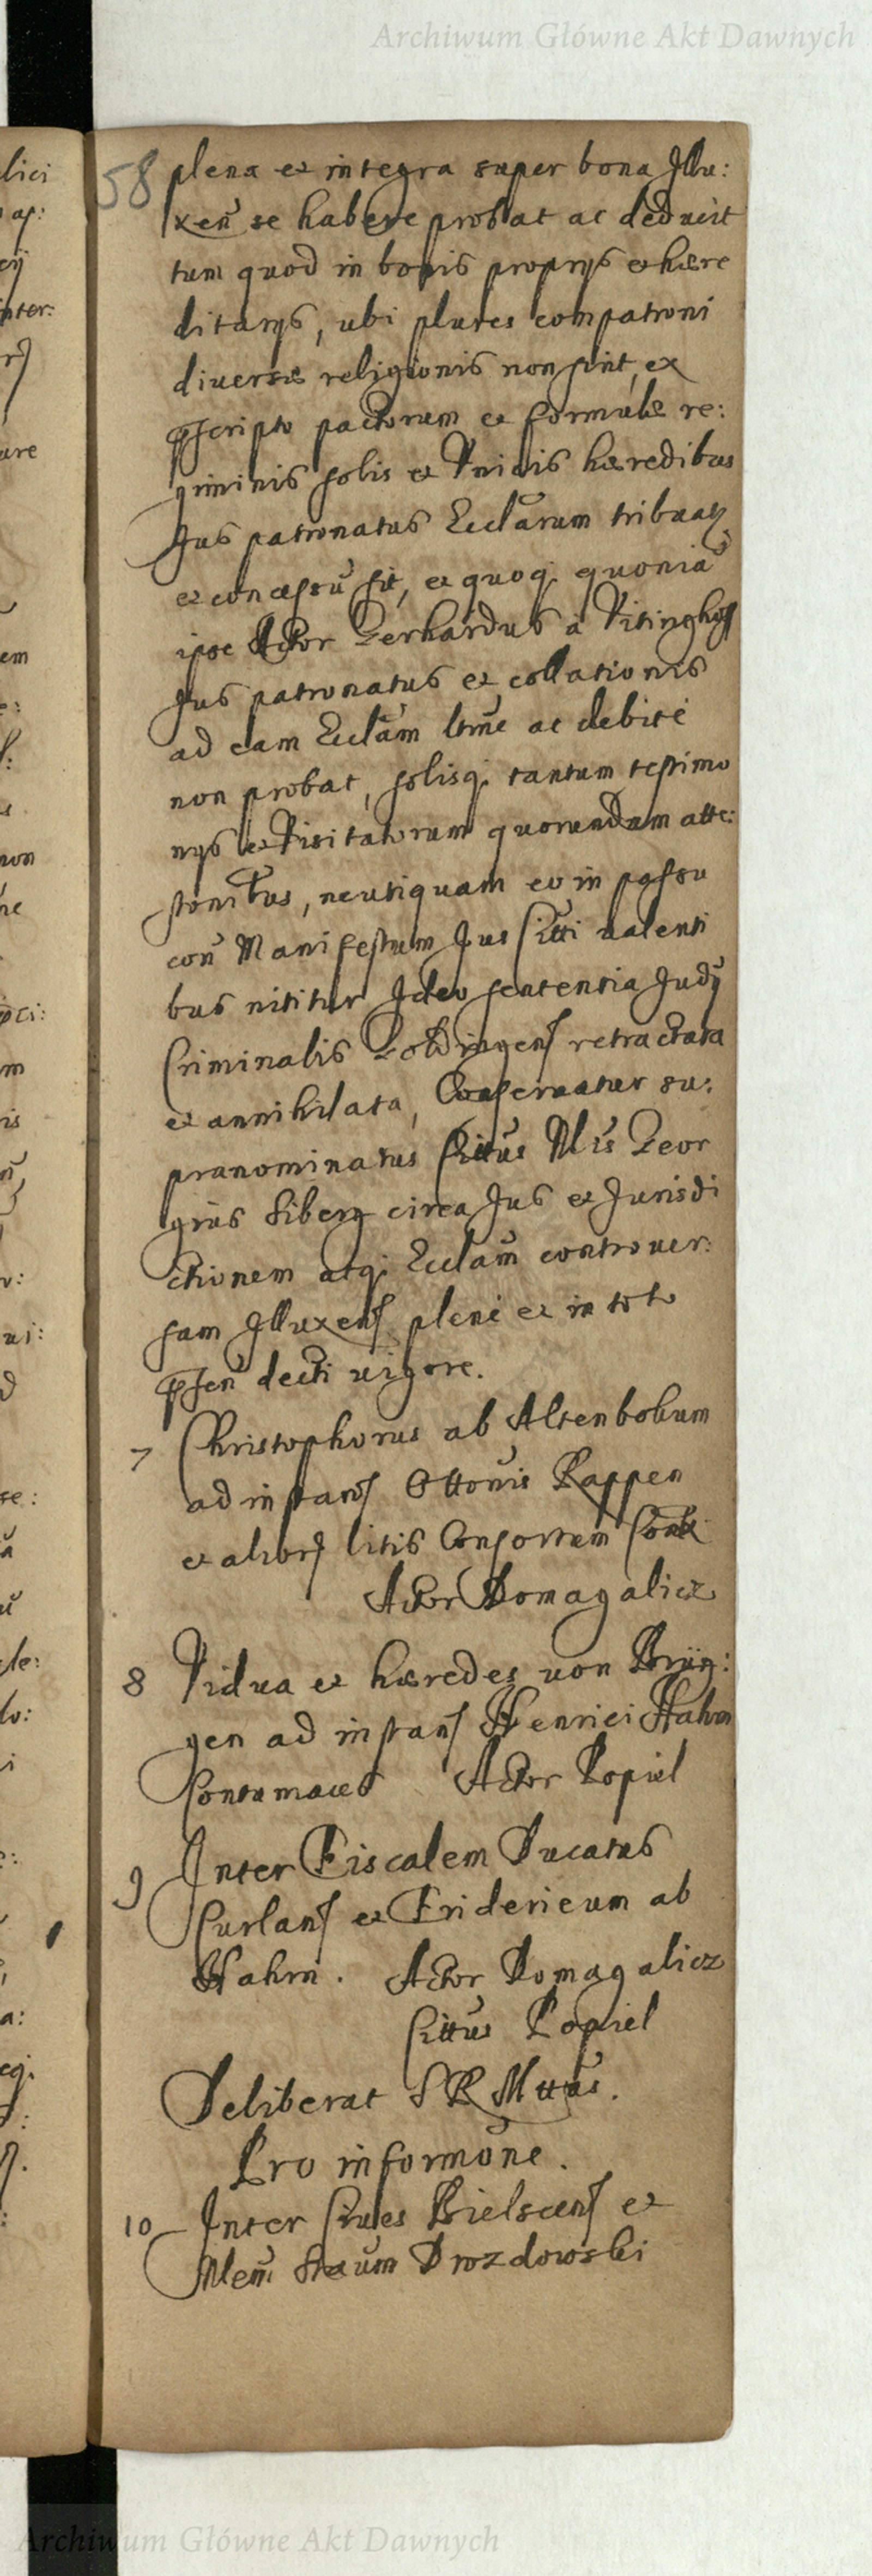 Archiwum Główne Akt Dawnych
58 plena et integra super bona Illu:
xen̄ se habere probat ac deducit
tum quod in bonis proprijs et hære
ditarijs, ubi plures compatroni
diversæ religionis non sint, ex
pscripto pactorum et formulæ re:
giminis solis et Unicis hæredibus
Jus patronatus Eccl̄arum tribuatr
et concessū sit, et quoq. quoniā
ipse Actor Gerhardus à Vitinghoff
Jus patronatus et collationis
ad eam Eccl̄am ltm̄e ac debitè
non probat, solisq. tantum testimo
nijs et Visitatorum quorundam atte:
stonibus, neutiquam eo in passu
con̄ Manifestum Jus Citti valenti
bus nititur Ideo sententia Judij
Criminalis Goldingens retractata
et annihilata, Conservatur su:
pranominatus Cittus Mis Geor
gius Siberg circa Jus et Jurisdi
ctionem atq. Eccl̄am controver:
sam Illuxens plenè et in toto
psen̄ decti vigore.
7 Christophorus ab Altenbokum
ad instans Ottonis Rappen
et alior litis Consortum Cont
Actor Domagalicz
8 Vidua et hæredes von Brüg:
gen ad instans Henrici Hahn
Contumaces Actor Popiel
9 Inter Fiscalem Ducatus
Curlans et Fridericum ab
Hahm. Actor Domagalicz
Cittus Popiel
Deliberat S R Mttas.
Pro informōne.
10 Inter Cives Bielscens et
Drozdowski
Archiwum Główne Akt Dawnych